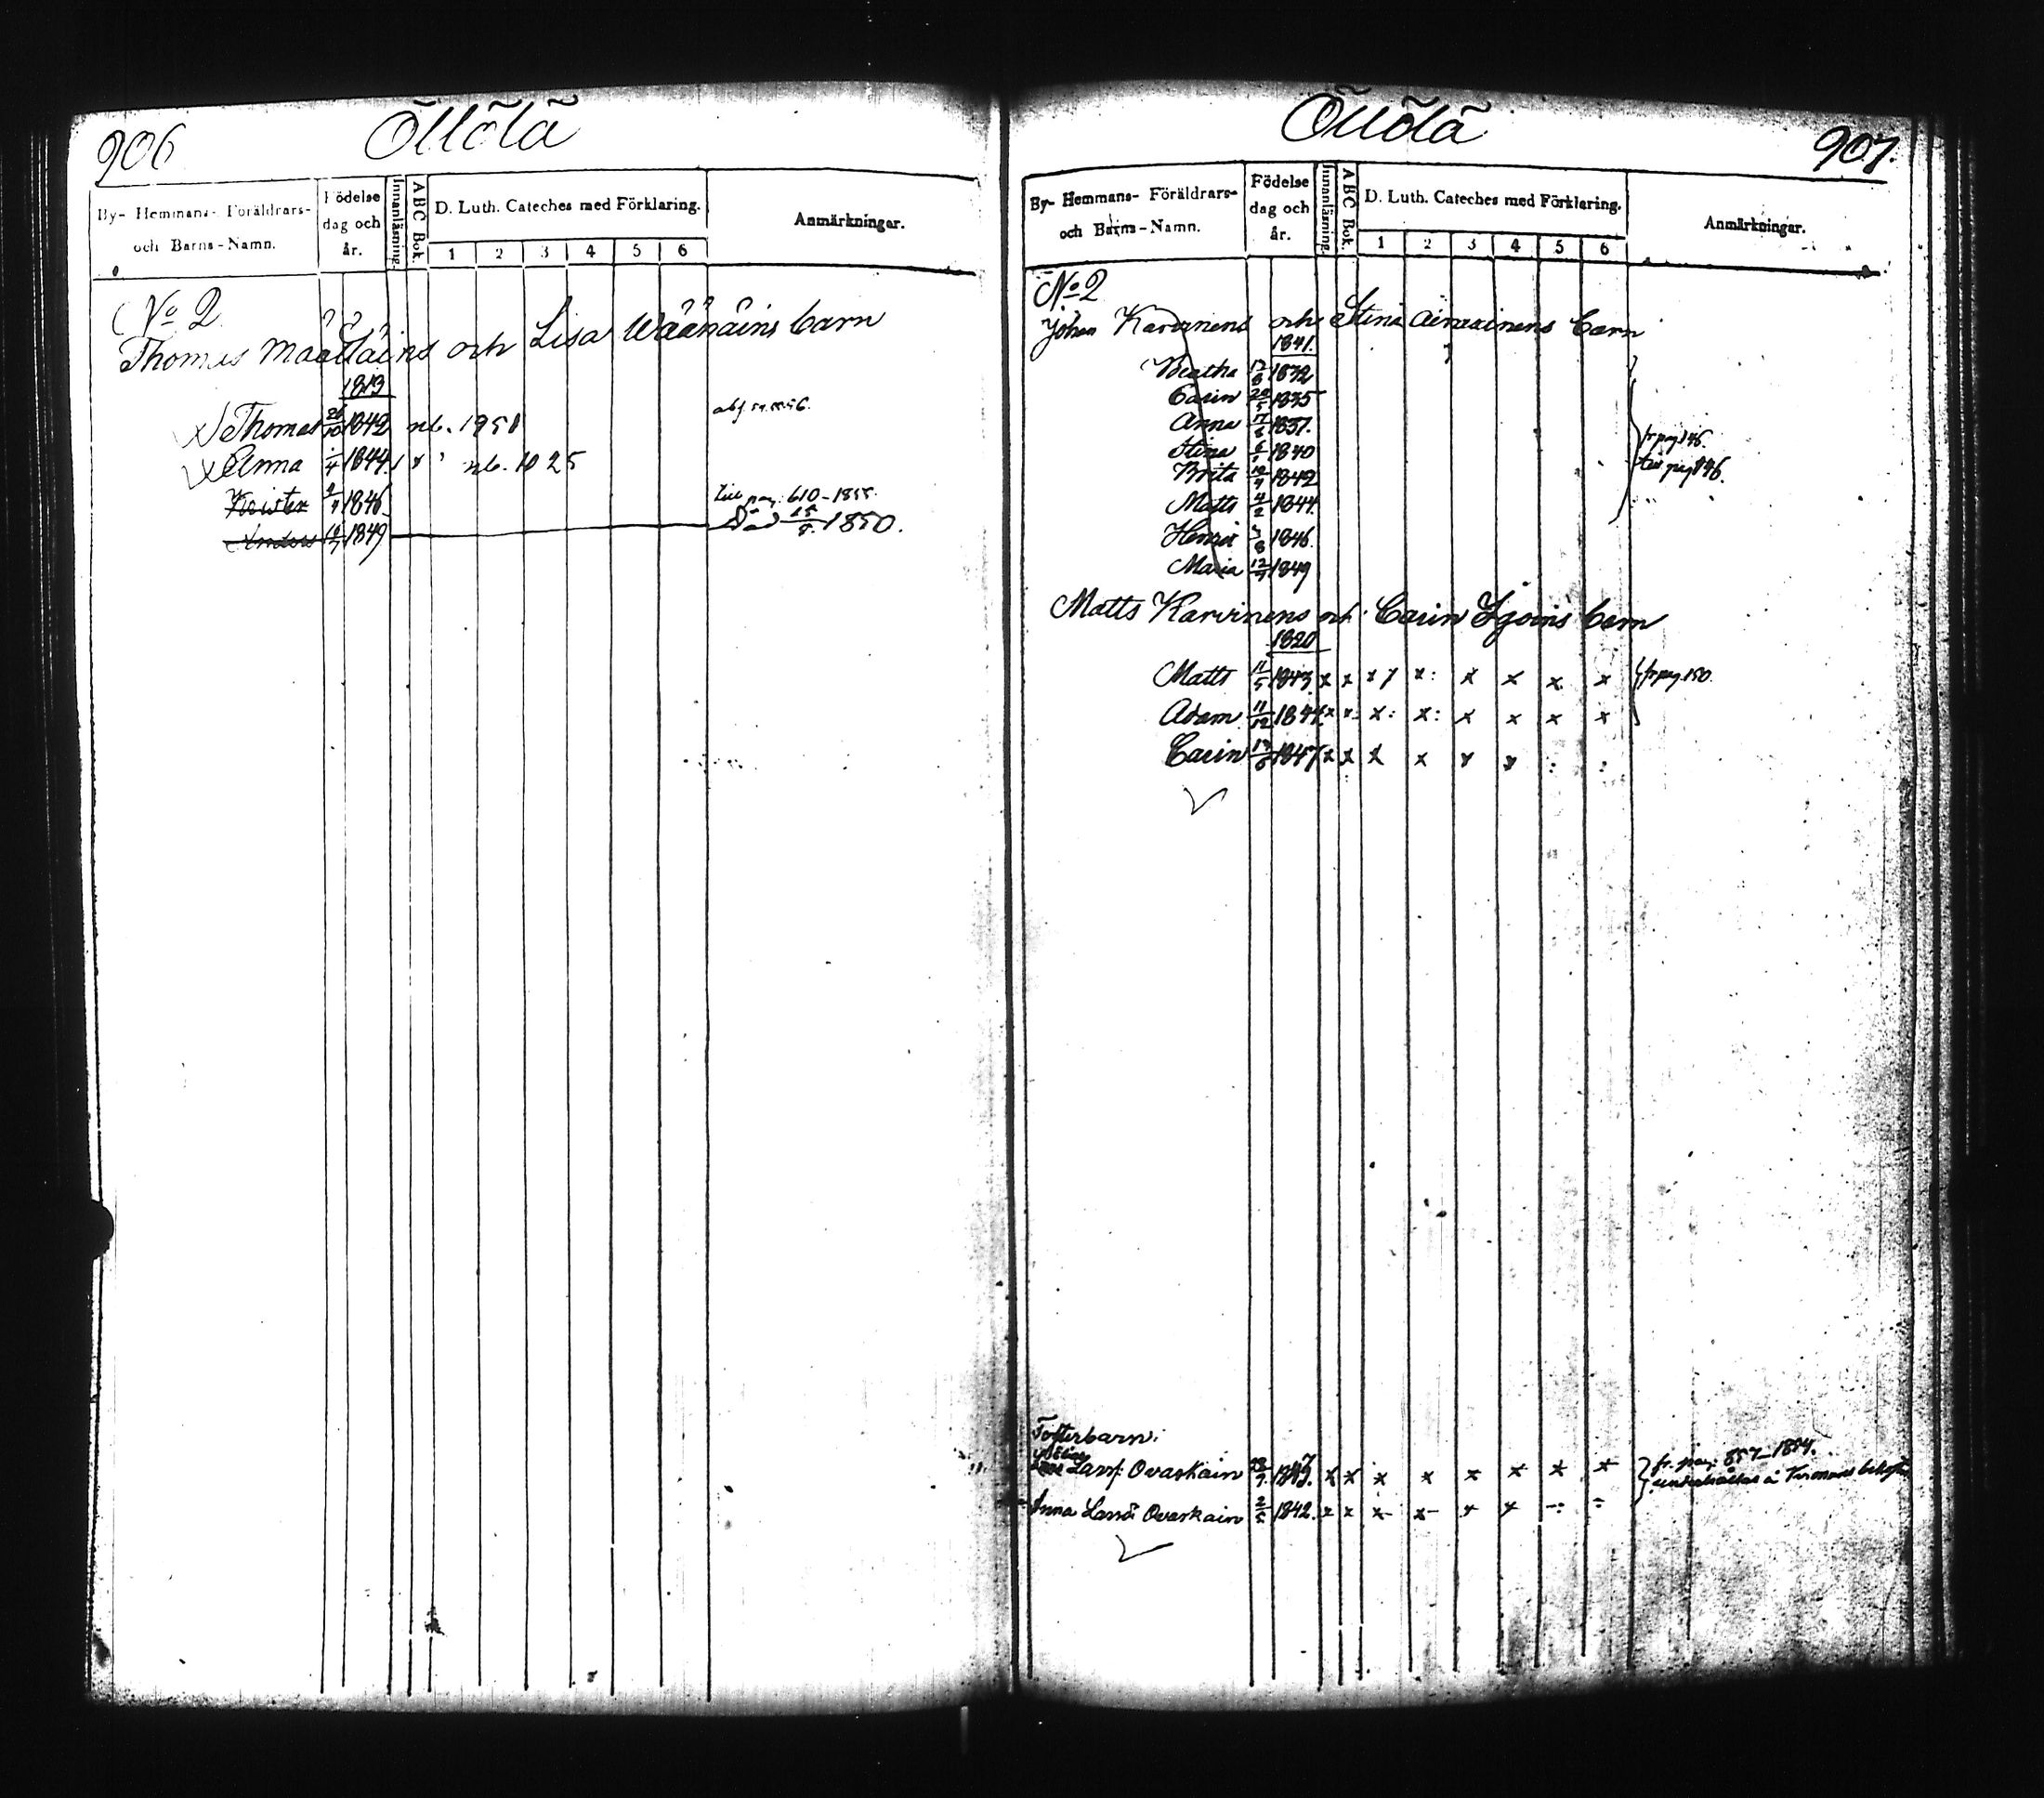 906
Öllölä
By- Hemmans- Föräldrars- och Barns-Namn.
Födelse dag och år.
Innanläsning.
ABC Bok.
D. Luth. Cateches med Förklaring.
1 2 3 4 5 6
Anmärkningar.
No 2
Thomas och Lisa Wäänäins barn
1813
Thomas 26/10 1842 nb. 1951
Anna 1844 x nb. 1025
1846 till pag. 610-1855.
Anders 1849 Död 15/5 1850.
Öllölä
907.
By- Hemmans- Föräldrars- och Barns-Namn.
Födelse dag och år.
Innanläsning.
ABC Bok.
D. Luth. Cateches med Förklaring.
1 2 3 4 5 6
Anmärkningar.
No 2
Johan Karvinens och Stina barn
1841.
Beatha 1832
Carin 1835
Anna 1837.
Stina 1840
Brita 1842
Matts 4/2 1844.
Henric 1846.
Maria 12/9 1849
Matts Karvinens och Carin barn
1820
Matts 11/5 1843. x x x x x x x x fr pag. 150.
Adam 11/12 1844 x x x: x: x x x x
Carin 1847 x x x x x x
Fosterbarn:
Ovaskain x x x x x x x x fr. pag. 857-1854.
Anna Ovaskain 2/5 1842. x x x- x- x x